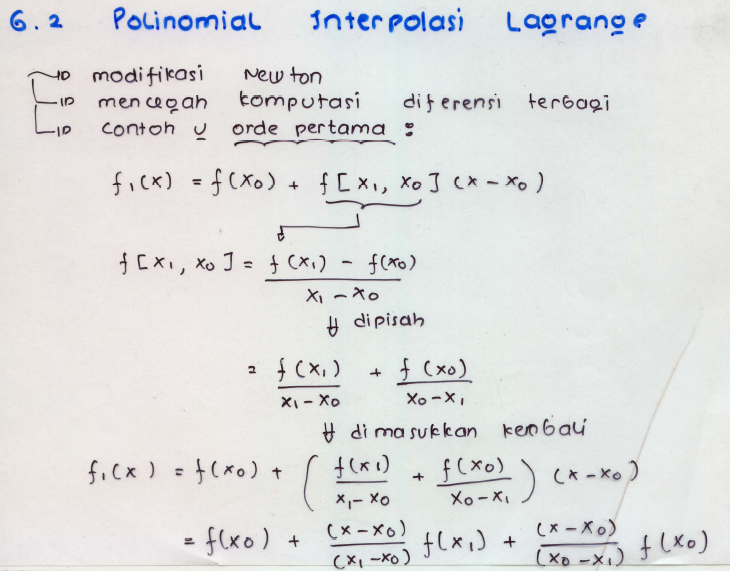 6.2 Polinomial Interpolasi Lagrange
modifikasi Newton
mencegah komputasi diferensi terbagi
contoh u orde pertama :
f₁(x) = f(x₀) + f[x₁, x₀] (x - x₀)
f[x₁, x₀] = \frac{f(x₁) - f(x₀)}{x₁ - x₀}
⇓ dipisah
= \frac{f(x₁)}{x₁ - x₀} + \frac{f(x₀)}{x₀ - x₁}
⇓ dimasukkan kembali
f₁(x) = f(x₀) + ( \frac{f(x₁)}{x₁ - x₀} + \frac{f(x₀)}{x₀ - x₁} ) (x - x₀)
= f(x₀) + \frac{(x - x₀)}{(x₁ - x₀)} f(x₁) + \frac{(x - x₀)}{(x₀ - x₁)} f(x₀)